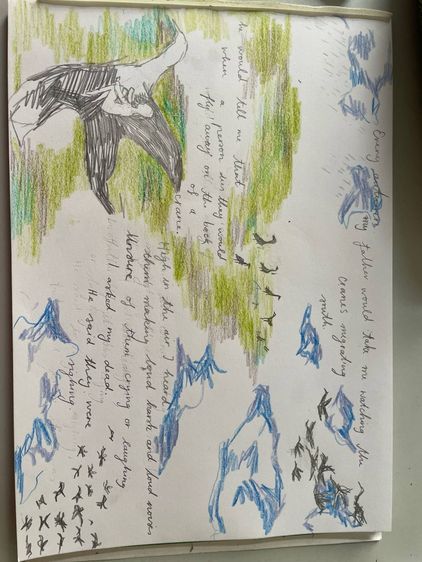 Every autumn
my father would take me watching the
cranes migrating
south
he would tell me that
when a person dies they would
fly away on the back
of a
crane.
High in the air I heard
them making loud harsh and loud noises
Unsure of them crying or laughing
I asked my dead
He said they were